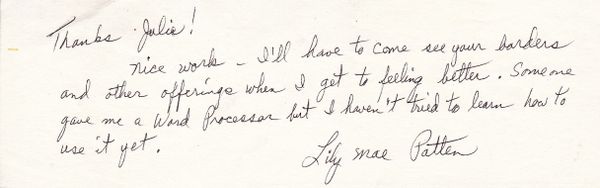 Thanks Julie!
Nice work - I'll have to come see your borders
and other offerings when I get to feeling better. Someone
gave me a Word Processor but I haven't tried to learn how to
use it yet.
Lily Mae Patten